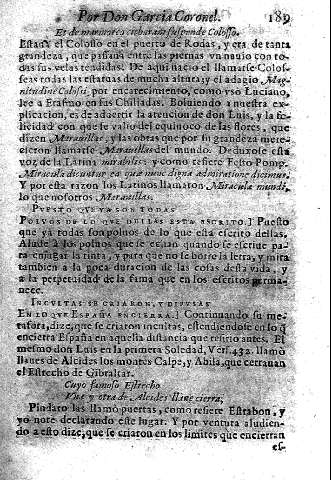 Por Don Garcia Coronel. 189
Et de marmorea citharam suspende Colosso.
Estauy el Colosso en el puerto de Rodas, y era de tanta
grandeza, que passaua entre las piernas vn nauio con to-
das sus velas tendidas. De aqui nacio el llamarse Colos-
seas todas las estatuas de mucha altura; y el adagio Mag-
nitudine Colossi, por encarecimiento, como vsò Luciano,
lee a Erasmo en sus Chiliadas. Boluiendo a nuestra ex-
plicacion, es de aduertir la atencion de don Luis, y la fe-
licidad con que se valio del equiuoco de las flores, que
dizen Marauillas; y las obras que por su grandeza mere-
cieron llamarse Marauillas del mundo. Deduxose esta
voz de la Latina mirabiles; y como refiere Festo Pomp.
Miracula dicuntur ea quæ nunc digna admiratione dicimus.
Y por esta razon los Latinos llamaron Miracula mundi,
lo que nosotros Marauillas.
PVESTO QVE YA SON TODAS
POLVOS DE LO QVE DELLAS ESTA ESCRITO.] Puesto
que ya todas son poluos de lo que esta escrito dellas.
Alude à los poluos que se echan quando se escriue pa-
ra enjugar la tinta, y para que no se borre la letra, y mira
tambien a la poca duracion de las cosas desta vida, y
a la perpetuidad de la fama que en los escritos perma-
nece.
INCVLTAS SE CRIARON, Y DIFVSAS
EN LO QVE ESPAÑA ENCIERRA.] Continuando su me-
tafora, dize, que se criaron incultas, estendiendose en lo q̃
encierra España en aquella distancia que refirio antes. El
mesmo don Luis en la primera Soledad, Vers. 432. llamò
llaues de Alcides los montes Calpe, y Abila, que cerrauan
el Estrecho de Gibraltar.
Cuyo famoso Estrecho
Vna y otra de Alcides llaue cierra;
Pindaro las llamò puertas, como refiere Estrabon, y
yo note declarando este lugar. Y por ventura aludien-
do a esto dize, que se criaron en los limites que encierran
es-